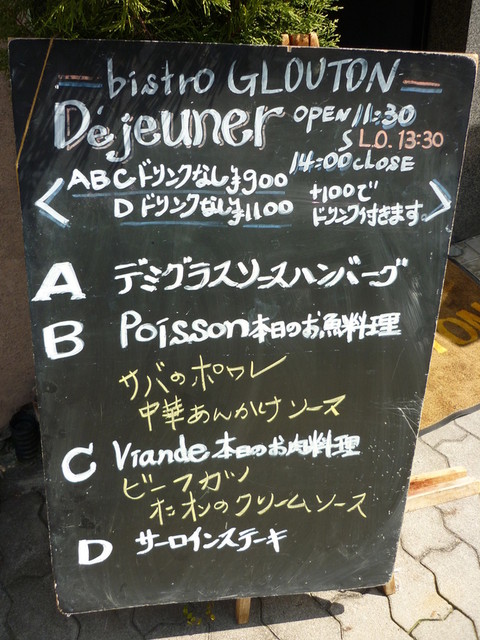 bistro GLOUTON
Déjeuner OPEN 11:30
S L.O. 13:30
14:00 CLOSE
ABCドリンクなし¥900
Dドリンクなし¥1100
+100で
ドリンク付きます。
A デミグラスソースハンバーグ
B Poisson本日のお魚料理
サバのポワレ
中華あんかけソース
C Viande本日のお肉料理
ビーフカツ
オニオンのクリームソース
D サーロインステーキ